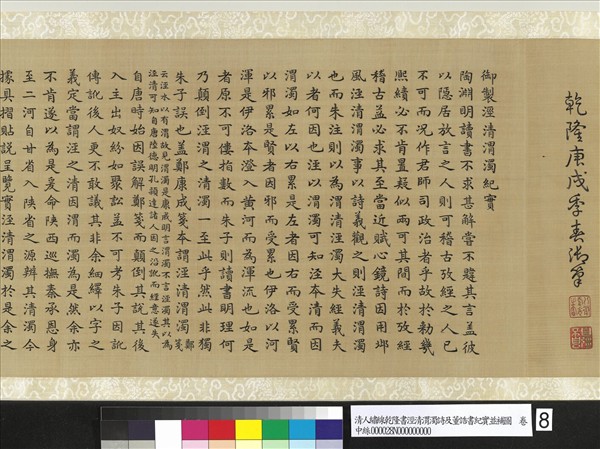 乾隆庚戌季春御筆
御製涇清渭濁紀實
陶淵明讀書不求甚解嘗不韙其言蓋彼
以隱居放言之人則可稽古攷經之人已
不可而況作君師司政治者乎故於勅幾
熙績必不肯置疑似兩可其間而於攷經
稽古益必求其至當近賦心鏡詩因用邶
風涇清渭濁事以詩義觀之則涇清渭濁
也而朱注則以為渭清涇濁大失經義夫
以者何因也涇以渭濁可知涇本清而因
渭濁如左以右累是左者因右而受累賢
以邪累是賢者因邪而受累也伊洛以河
渾是伊洛本澄入黃河而為渾流也如是
者原不可僂指數而朱子則讀書明理何
乃顛倒涇渭之清濁一至此乎然此非獨
朱子誤也蓋鄭康成箋本謂涇清渭濁鄭箋
云涇水以有渭故見渭濁是康成明言渭濁不言涇濁其以為
涇清可知自唐陸德明孔穎達諸人因之沿訛而經意遂失
自唐時始因誤解鄭箋而顛倒其說其後
入主出奴紛如聚訟蓋不可考朱子因訛
傳訛後人更不敢議其非余細繹以字之
義定當謂涇之清因渭而濁為是然余亦
不肯遂以為是爰命陝西巡撫秦承恩身
至二河自甘省入陝省之源辨其清濁今
據具摺貼說呈覽實涇清渭濁於是余之
清人繡線乾隆書涇清渭濁詩及董誥書紀實並補圖 卷
中絲000028N000000000
8